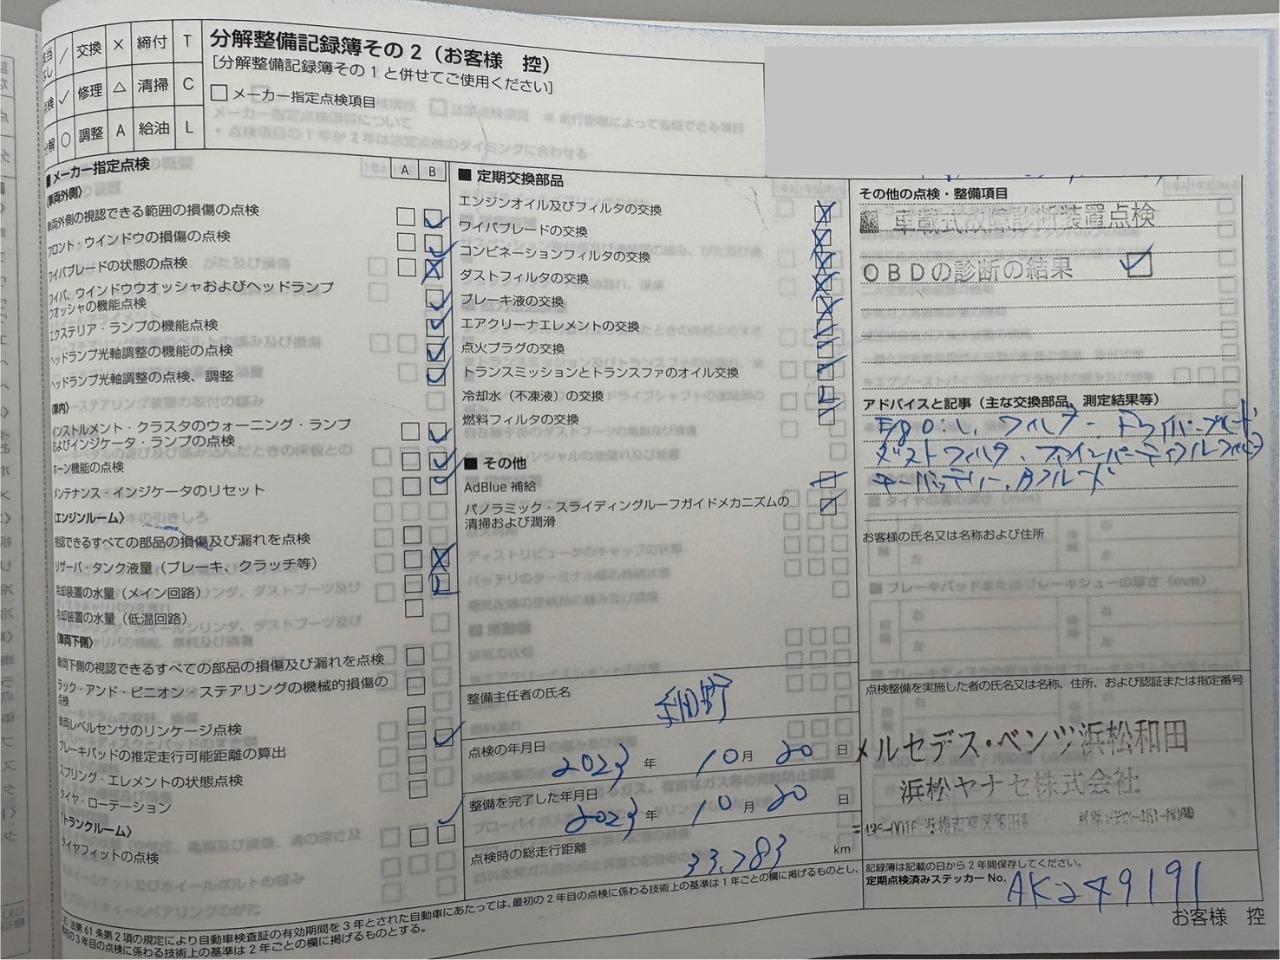 交換 × 締付 T
✓ 修理 △ 清掃 C
○ 調整 A 給油 L
分解整備記録簿その2（お客様　控）
[分解整備記録簿その1と併せてご使用ください]
□ メーカー指定点検項目
■メーカー指定点検
A B
〈車両外側〉
車両外側の視認できる範囲の損傷の点検
フロント・ウインドウの損傷の点検
ワイパブレードの状態の点検
ワイパ、ウインドウウオッシャおよびヘッドランプ
ウオッシャの機能点検
エクステリア・ランプの機能点検
ヘッドランプ光軸調整の機能の点検
ヘッドランプ光軸調整の点検、調整
〈車内〉
インストルメント・クラスタのウォーニング・ランプ
およびインジケータ・ランプの点検
ホーン機能の点検
メンテナンス・インジケータのリセット
〈エンジンルーム〉
視認できるすべての部品の損傷及び漏れを点検
リザーバ・タンク液量（ブレーキ、クラッチ等）
冷却装置の水量（メイン回路）
冷却装置の水量（低温回路）
〈車両下側〉
車両下側の視認できるすべての部品の損傷及び漏れを点検
ラック・アンド・ピニオン・ステアリングの機械的損傷の
点検
車両レベルセンサのリンケージ点検
ブレーキパッドの推定走行可能距離の算出
スプリング・エレメントの状態点検
タイヤ・ローテーション
〈トランクルーム〉
タイヤフィットの点検
■ 定期交換部品
エンジンオイル及びフィルタの交換
ワイパブレードの交換
コンビネーションフィルタの交換
ダストフィルタの交換
ブレーキ液の交換
エアクリーナエレメントの交換
点火プラグの交換
トランスミッションとトランスファのオイル交換
冷却水（不凍液）の交換
燃料フィルタの交換
■ その他
AdBlue 補給
パノラミック・スライディングルーフガイドメカニズムの
清掃および潤滑
整備主任者の氏名
細野
点検の年月日
2023 年 10 月 20 日
整備を完了した年月日
2023 年 10 月 20 日
点検時の総走行距離
33,283 km
その他の点検・整備項目
車載式故障診断装置点検
OBDの診断の結果
アドバイスと記事（主な交換部品、測定結果等）
ダストフィルタ
キーバッテリー、
お客様の氏名又は名称および住所
点検整備を実施した者の氏名又は名称、住所、および認証または指定番号
メルセデス・ベンツ浜松和田
浜松ヤナセ株式会社
記録簿は記載の日から2年間保存してください。
定期点検済みステッカーNo. AK249191
お客様　控
法第61条第2項の規定により自動車検査証の有効期間を3年とされた自動車にあたっては、最初の2年目の点検に係わる技術上の基準は1年ごとの欄に掲げるものとし、
の3年目の点検に係わる技術上の基準は2年ごとの欄に掲げるものとする。